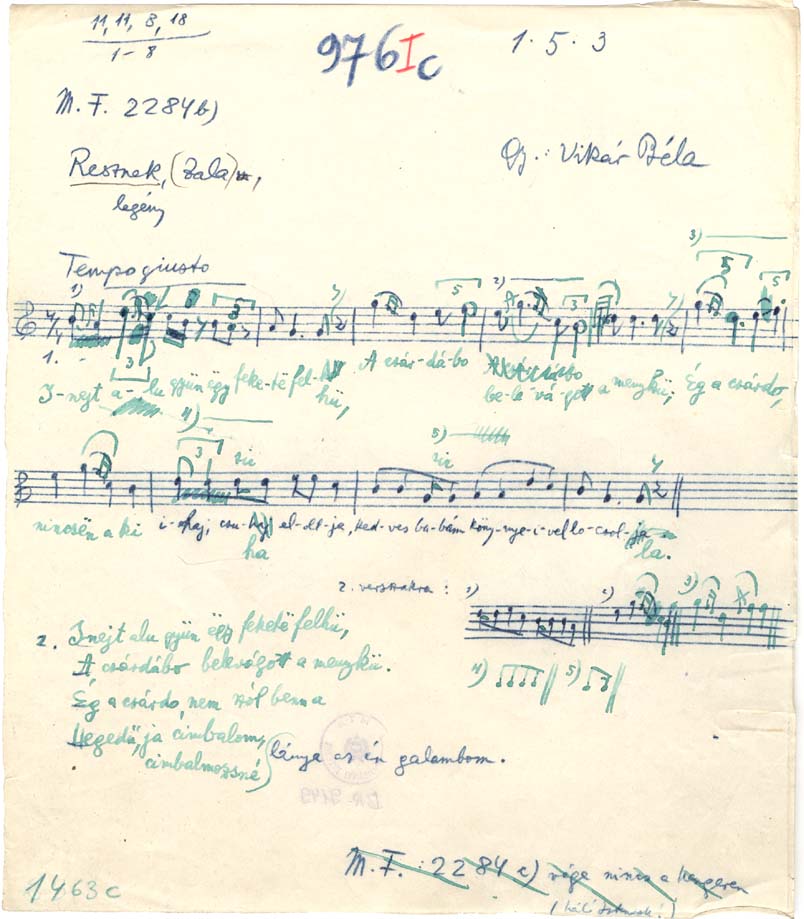 11, 11, 8, 18
1-8
976 I c
1 . 5 . 3
M. F. 2284 b)
Gy.: Vikár Béla
Resznek, (Zala),
legény
3)
Tempo giusto
1) 5 2) 5 5
3 3
1.
I-nejt a-lu gyün ëgy feke-të fel-hü,
A csár-dá-bo
be-le-vá-gott a menykü; Ég a csárdo,
4) 3 5)
sic sic
nincsën a ki i-haj, csu-haj el-ót-ja, ked-ves ba-bám köny-nye-i-vel lo-csol-ja
ha la.
2. versszakra: 1) 2) 3)
4) 5)
2. Inejt alu gyün ëgy feketë felhü,
A csárdábo belevágott a menykü.
Ég a csárdo, nem szól benna
Hegedü, ja cimbalom,
cimbalmozsné
lánya az én galambom.
M. F. : 2284 c) vége nincs a hengeren
1463 c